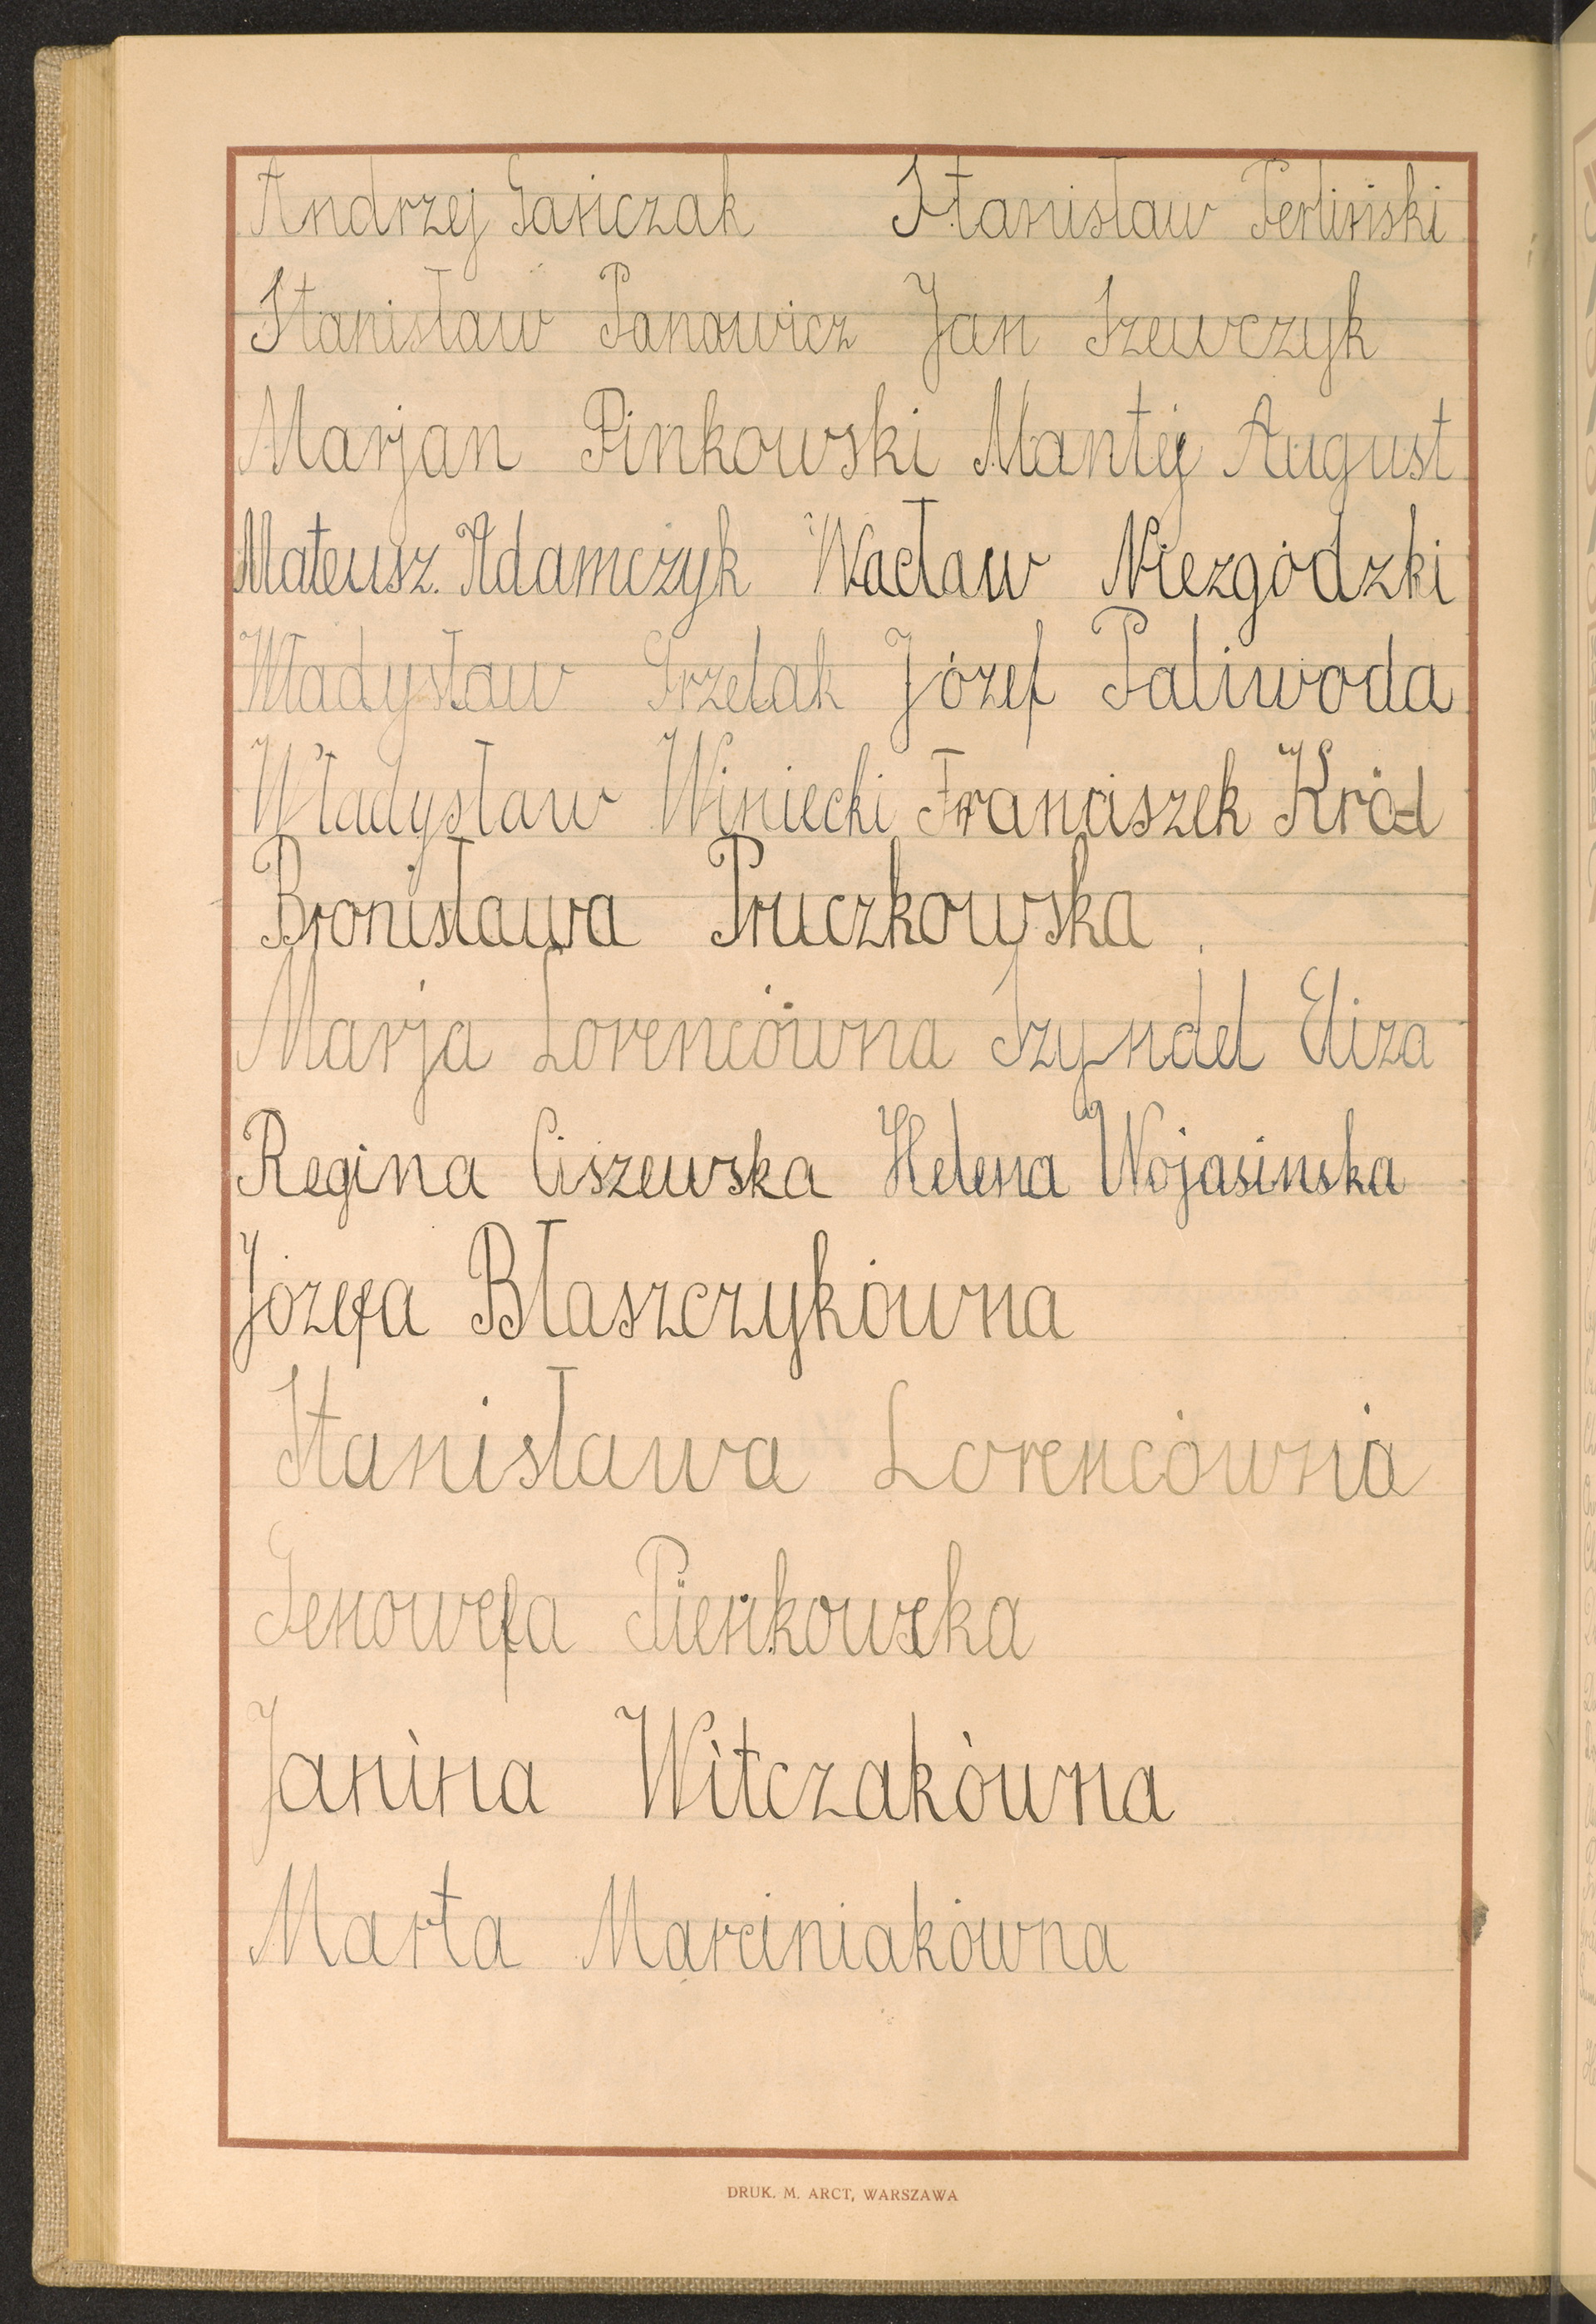 Andrzej Gańczak Stanisław Perliński
Stanisław Panowicz Jan Szewczyk
Marjan Pinkowski Mantej August
Mateusz. Adamczyk Wacław Niezgódzki
Władysław Grzelak Józef Paliwoda
Władysław Winiecki Franciszek Król
Bronisława Pruczkowska
Marja Lorencówna Szyndel Eliza
Regina Ciszewska Helena Wojasinska
Józefa Błaszczykówna
Stanisława Lorencówna
Genowefa Pieńkowska
Janina Witczakówna
Marta Marciniakówna
DRUK. M. ARCT, WARSZAWA